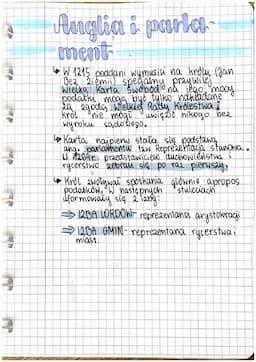 Anglia i parla-
ment
↳ W 1215 poddani wymusili na królu (Jan
Bez Ziemi) specjalny przywilej
Wielką Kartę Swobód na jego mocy
podatki mogą być tylko nakładane
za zgodą Wielkiej Rady Królestwa i
król nie mógł uwięzić nikogo bez
wyroku sądowego.
↳ Karta najpierw stała się podstawą
ang. parlamentu tzw Reprezentacja Stanowa.
W 1264r. przedstawiciele duchowieństwa i
rycerstwo zebrali się po raz pierwszy.
↳ Król zwoływał spotkania głównie apropos
podatków. W następnych stuleciach
uformowały się 2 izby:
⇒ IZBA LORDÓW - reprezentanci arystokracji
⇒ IZBA GMIN - reprezentanci rycerstwa i
miast.